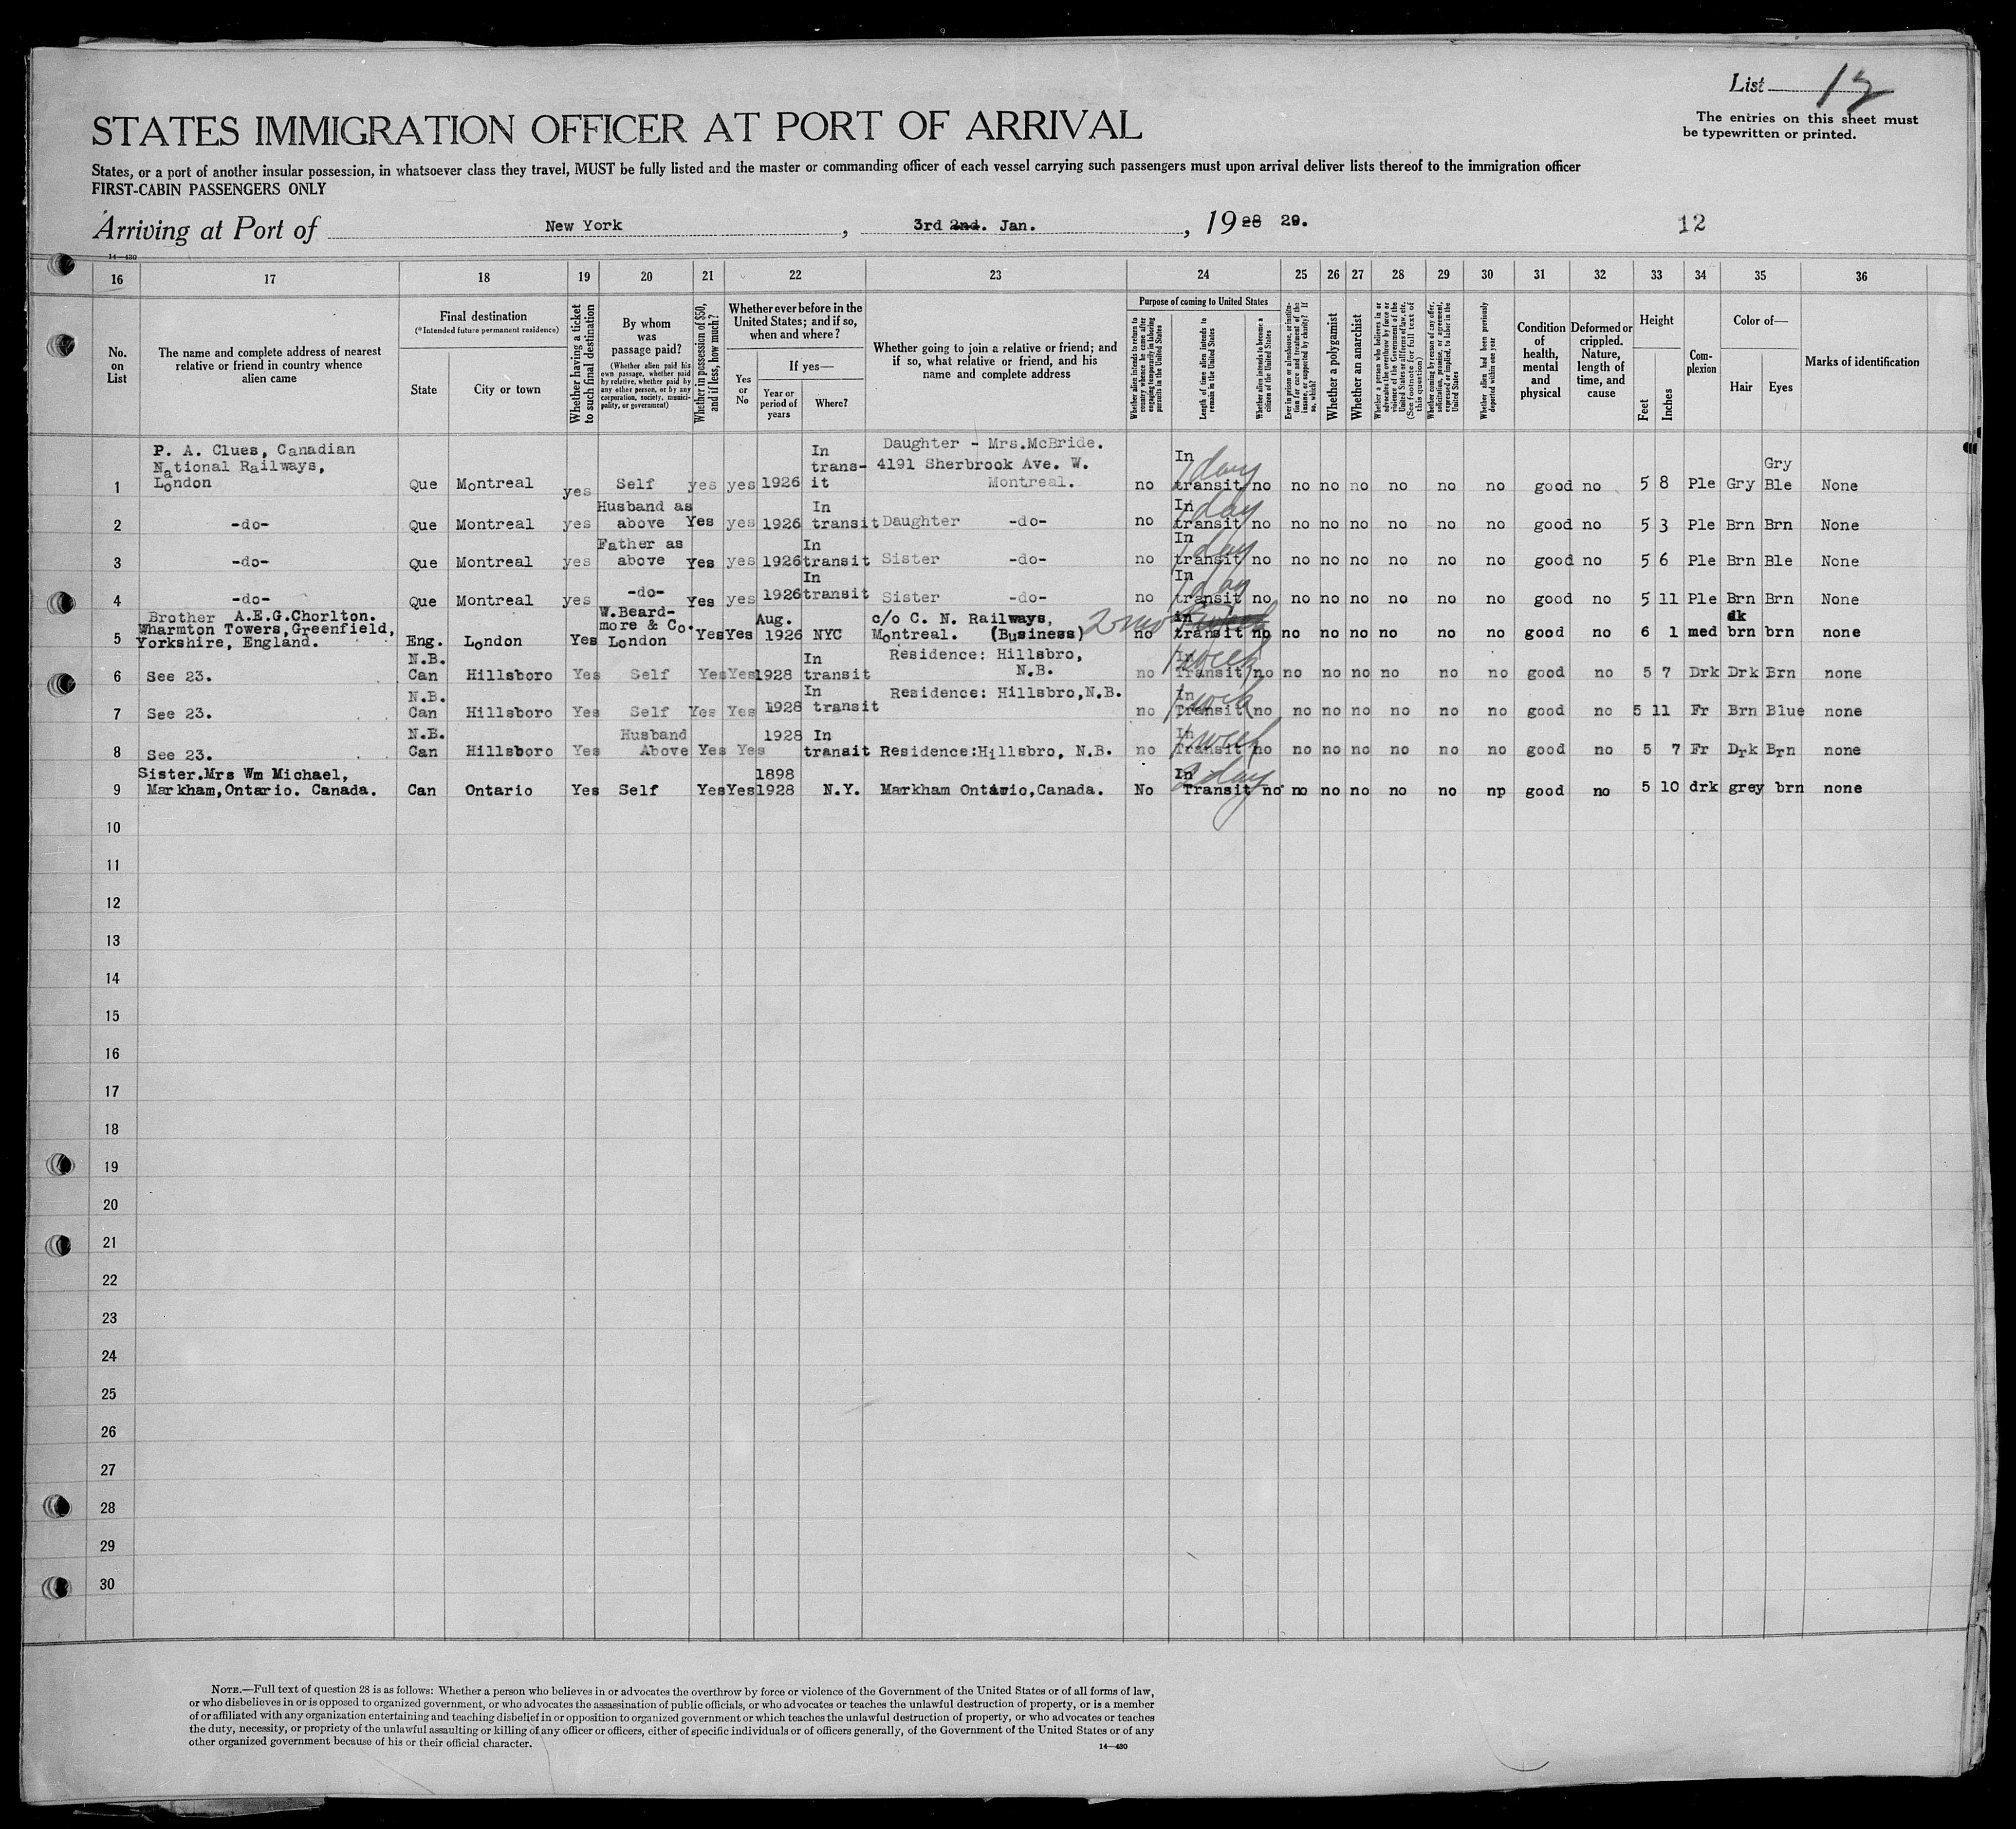 List 12
The entries on this sheet must
be typewritten or printed.
STATES IMMIGRATION OFFICER AT PORT OF ARRIVAL
States, or a port of another insular possession, in whatsoever class they travel, MUST be fully listed and the master or commanding officer of each vessel carrying such passengers must upon arrival deliver lists thereof to the immigration officer
FIRST-CABIN PASSENGERS ONLY
Arriving at Port of New York, 3rd 2nd. Jan., 1928 29. 12
14—430
16 17 18 19 20 21 22 23 24 25 26 27 28 29 30 31 32 33 34 35 36
No. on List
The name and complete address of nearest relative or friend in country whence alien came
Final destination
(*Intended future permanent residence)
State
City or town
Whether having a ticket to such final destination
By whom was passage paid?
(Whether alien paid his own passage, whether paid by relative, whether paid by any other person, or by any corporation, society, municipality, or government)
Whether in possession of $50, and if less, how much?
Whether ever before in the United States; and if so, when and where?
Yes or No
If yes—
Year or period of years
Where?
Whether going to join a relative or friend; and if so, what relative or friend, and his name and complete address
Purpose of coming to United States
Whether alien intends to return to country whence he came after engaging temporarily in laboring pursuits in the United States
Length of time alien intends to remain in the United States
Whether alien intends to become a citizen of the United States
Ever in prison or almshouse, or institution for care and treatment of the insane, or supported by charity? If so, which?
Whether a polygamist
Whether an anarchist
Whether a person who believes in or advocates the overthrow by force or violence of the Government of the United States or all forms of law, etc. (See footnote for full text of this question)
Whether coming by reason of any offer, solicitation, promise, or agreement, expressed or implied, to labor in the United States
Whether alien had been previously deported within one year
Condition of health, mental and physical
Deformed or crippled. Nature, length of time, and cause
Height
Feet
Inches
Complexion
Color of—
Hair
Eyes
Marks of identification
1 P. A. Clues, Canadian National Railways, London Que Montreal yes Self yes yes 1926 In trans-it Daughter - Mrs.McBride. 4191 Sherbrook Ave. W. Montreal. no In transit 1 day no no no no no no no good no 5 8 Ple Gry Gry Ble None
2 -do- Que Montreal yes Husband as above Yes yes 1926 In transit Daughter -do- no In transit 1 day no no no no no no no good no 5 3 Ple Brn Brn None
3 -do- Que Montreal yes Father as above Yes yes 1926 In transit Sister -do- no In transit 1 day no no no no no no no good no 5 6 Ple Brn Ble None
4 -do- Que Montreal yes -do- Yes yes 1926 In transit Sister -do- no In transit 1 day no no no no no no no good no 5 11 Ple Brn Brn None
5 Brother A.E.G.Chorlton. Wharmton Towers,Greenfield, Yorkshire, England. Eng. London Yes W.Beard-more & Co. London Yes Yes Aug. 1926 NYC c/o C. N. Railways, Montreal. (Business) 2 mo no In transit no no no no no no no good no 6 1 med dk brn brn none
6 See 23. N.B. Can Hillsboro Yes Self Yes Yes 1928 In transit Residence: Hillsbro, N.B. no In Transit 1 week no no no no no no no good no 5 7 Drk Drk Brn none
7 See 23. N.B. Can Hillsboro Yes Self Yes Yes 1928 In transit Residence: Hillsbro,N.B. no In Transit 1 week no no no no no no no good no 5 11 Fr Brn Blue none
8 See 23. N.B. Can Hillsboro Yes Husband Above Yes Yes 1928 In transit Residence:Hillsbro, N.B. no In Transit 1 week no no no no no no no good no 5 7 Fr Drk Brn none
9 Sister.Mrs Wm Michael, Markham,Ontario. Canada. Can Ontario Yes Self Yes Yes 1898 1928 N.Y. Markham Ontario,Canada. No In Transit day no no no no no no np good no 5 10 drk grey brn none
10
11
12
13
14
15
16
17
18
19
20
21
22
23
24
25
26
27
28
29
30
NOTE.—Full text of question 28 is as follows: Whether a person who believes in or advocates the overthrow by force or violence of the Government of the United States or of all forms of law,
or who disbelieves in or is opposed to organized government, or who advocates the assassination of public officials, or who advocates or teaches the unlawful destruction of property, or is a member
of or affiliated with any organization entertaining and teaching disbelief in or opposition to organized government or which teaches the unlawful destruction of property, or who advocates or teaches
the duty, necessity, or propriety of the unlawful assaulting or killing of any officer or officers, either of specific individuals or of officers generally, of the Government of the United States or of any
other organized government because of his or their official character.
14—430